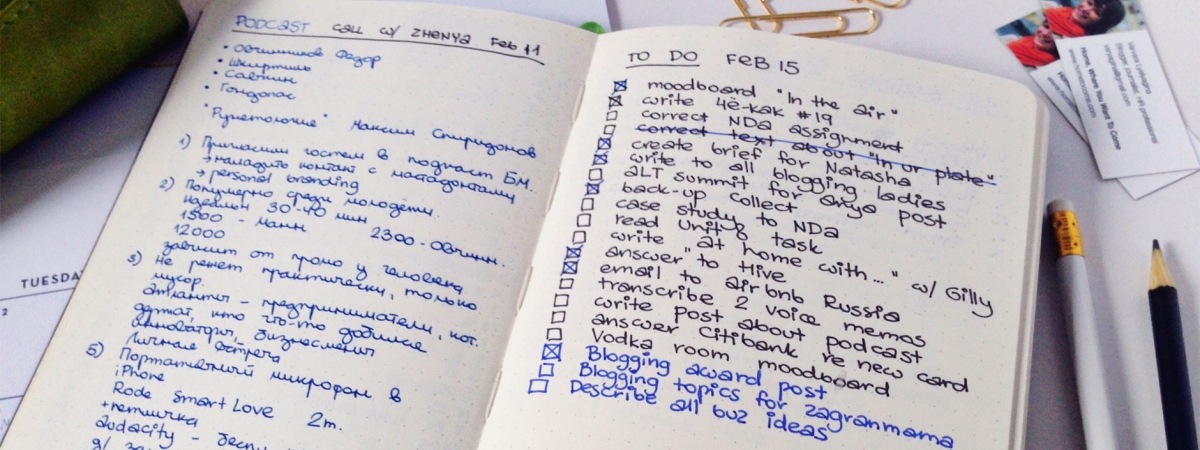 PODCAST call w/ ZHENYA Feb 11
• Овчинников Федор
• Шкиртиль
• Савкин
• Гандапас
"Рунетология" Максим Спиридонов
1) Пригласим гостем в подкаст БМ.
→ наладить контакт с мастодонтами
→ personal branding
2) Популярно среди молодёжи.
идеальн 30-40 мин
1500 - манн 2300 - Овчинн.
12000
зависит от промо у человека
3) Не режет практически, только
мусор.
предприниматели, кот.
думают, что что-то добился
инноваторы, бизнесмены
Личная встреча
5) Портативный микрофон в
iPhone
Rode Smart Love 2m.
+ петличка
audacity -
TO DO FEB 15
☒ moodboard "In the air"
☒ write 4ё-как #19
☐ correct NDA assignment
☐ correct text about "In or plate"
☒ create brief for Natasha
☒ write to all blogging ladies
☐ ALT summit for anya post
☒ back-up collect
☐ case study to NDA
☐ read Unity task
☐ write "at home with..." w/ Gilly
☒ answer to Hive
☒ email to airbnb Russia
☐ transcribe 2 voice memos
☐ write post about podcast
☐ answer Citibank re new card
☐ Vodka room moodboard
☒ Blogging award post
☐ Blogging topics for zagranmama
☐ Describe all buz ideas
TUESDAY
2
Blogger, journalist, HR professional
Home. Where You Want To Come